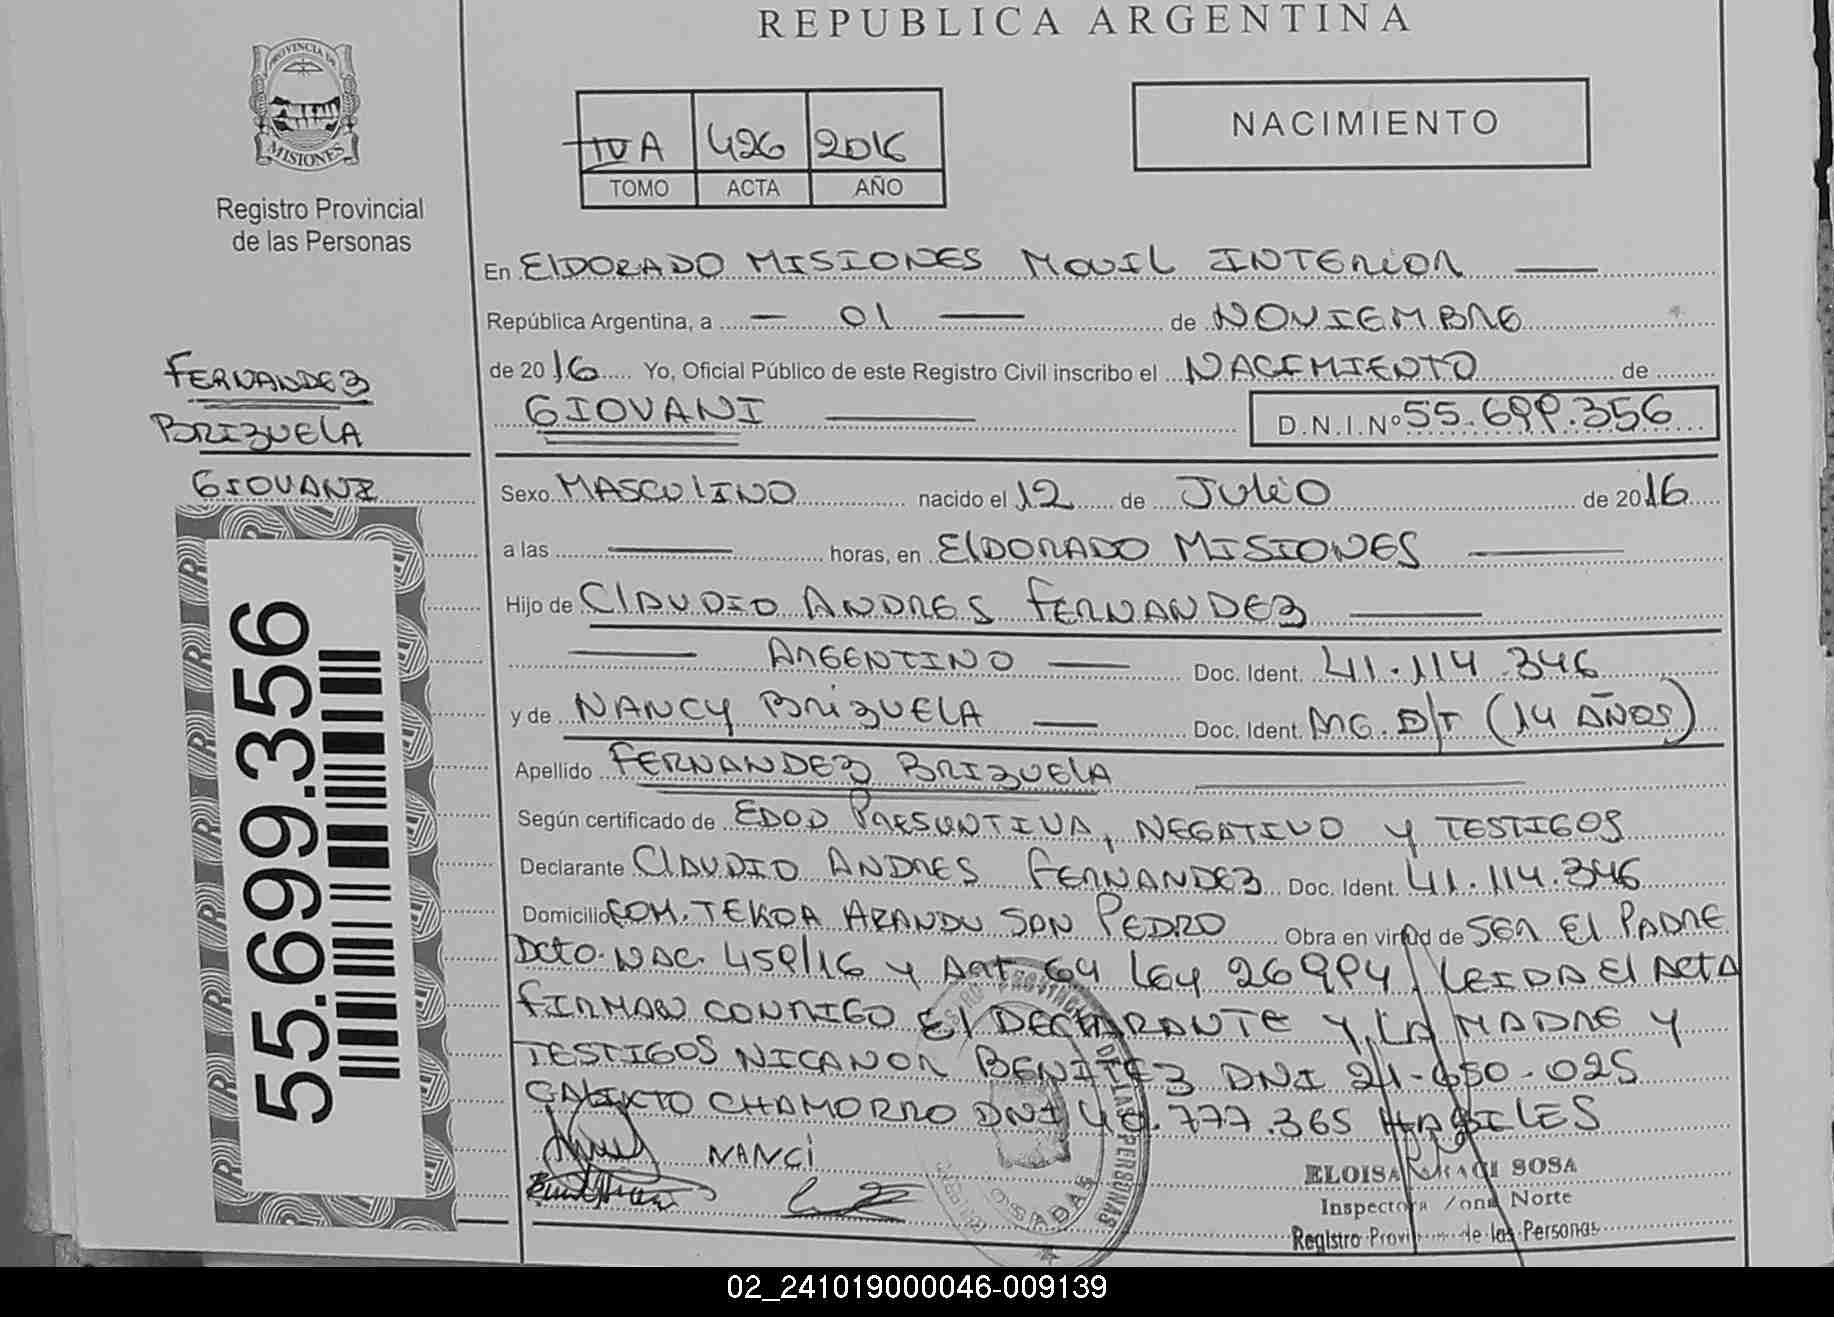 REPUBLICA ARGENTINA
PROVINCIA DE
MISIONES
Registro Provincial
de las Personas
IVA 426 2016
TOMO ACTA AÑO
NACIMIENTO
En ElDORADO MISIONES MOVIL INTERIOR
República Argentina, a 01 de NOVIEMBRE
de 2016 Yo, Oficial Público de este Registro Civil inscribo el NACIMIENTO de
GIOVANI D.N.I.Nº 55.699.356
FERNANDEZ
BRIZUELA
GIOVANI
55.699.356
Sexo MASCULINO nacido el 12 de JULIO de 2016
a las horas, en ElDORADO MISIONES
Hijo de ClAUDIO ANDRES FERNANDEZ
ARGENTINO Doc. Ident. 41.114.346
y de NANCY BRIZUELA Doc. Ident. MG. D/T (14 AÑOS)
Apellido FERNANDEZ BRIZUELA
Según certificado de EDAD PRESUNTIVA, NEGATIVO Y TESTIGOS
Declarante ClAUDIO ANDRES FERNANDEZ Doc. Ident. 41.114.346
Domicilio COM. TEKOA ARANDU SAN PEDRO Obra en virtud de SER El PADRE
Dcto. NAC. 459/16 Y Art. 64 lEY 26994, LEIDA El ACTA
FIRMAN CONMIGO El DECLARANTE Y LA MADRE Y
TESTIGOS NICANOR BENITEZ DNI 21.650.025
CALIXTO CHAMORRO DNI 40.777.365 HABILES
NANCI
ELOISA SOSA
Inspectora Zona Norte
Registro Provincial de las Personas
DE LAS PERSONAS
POSADAS
02_241019000046-009139